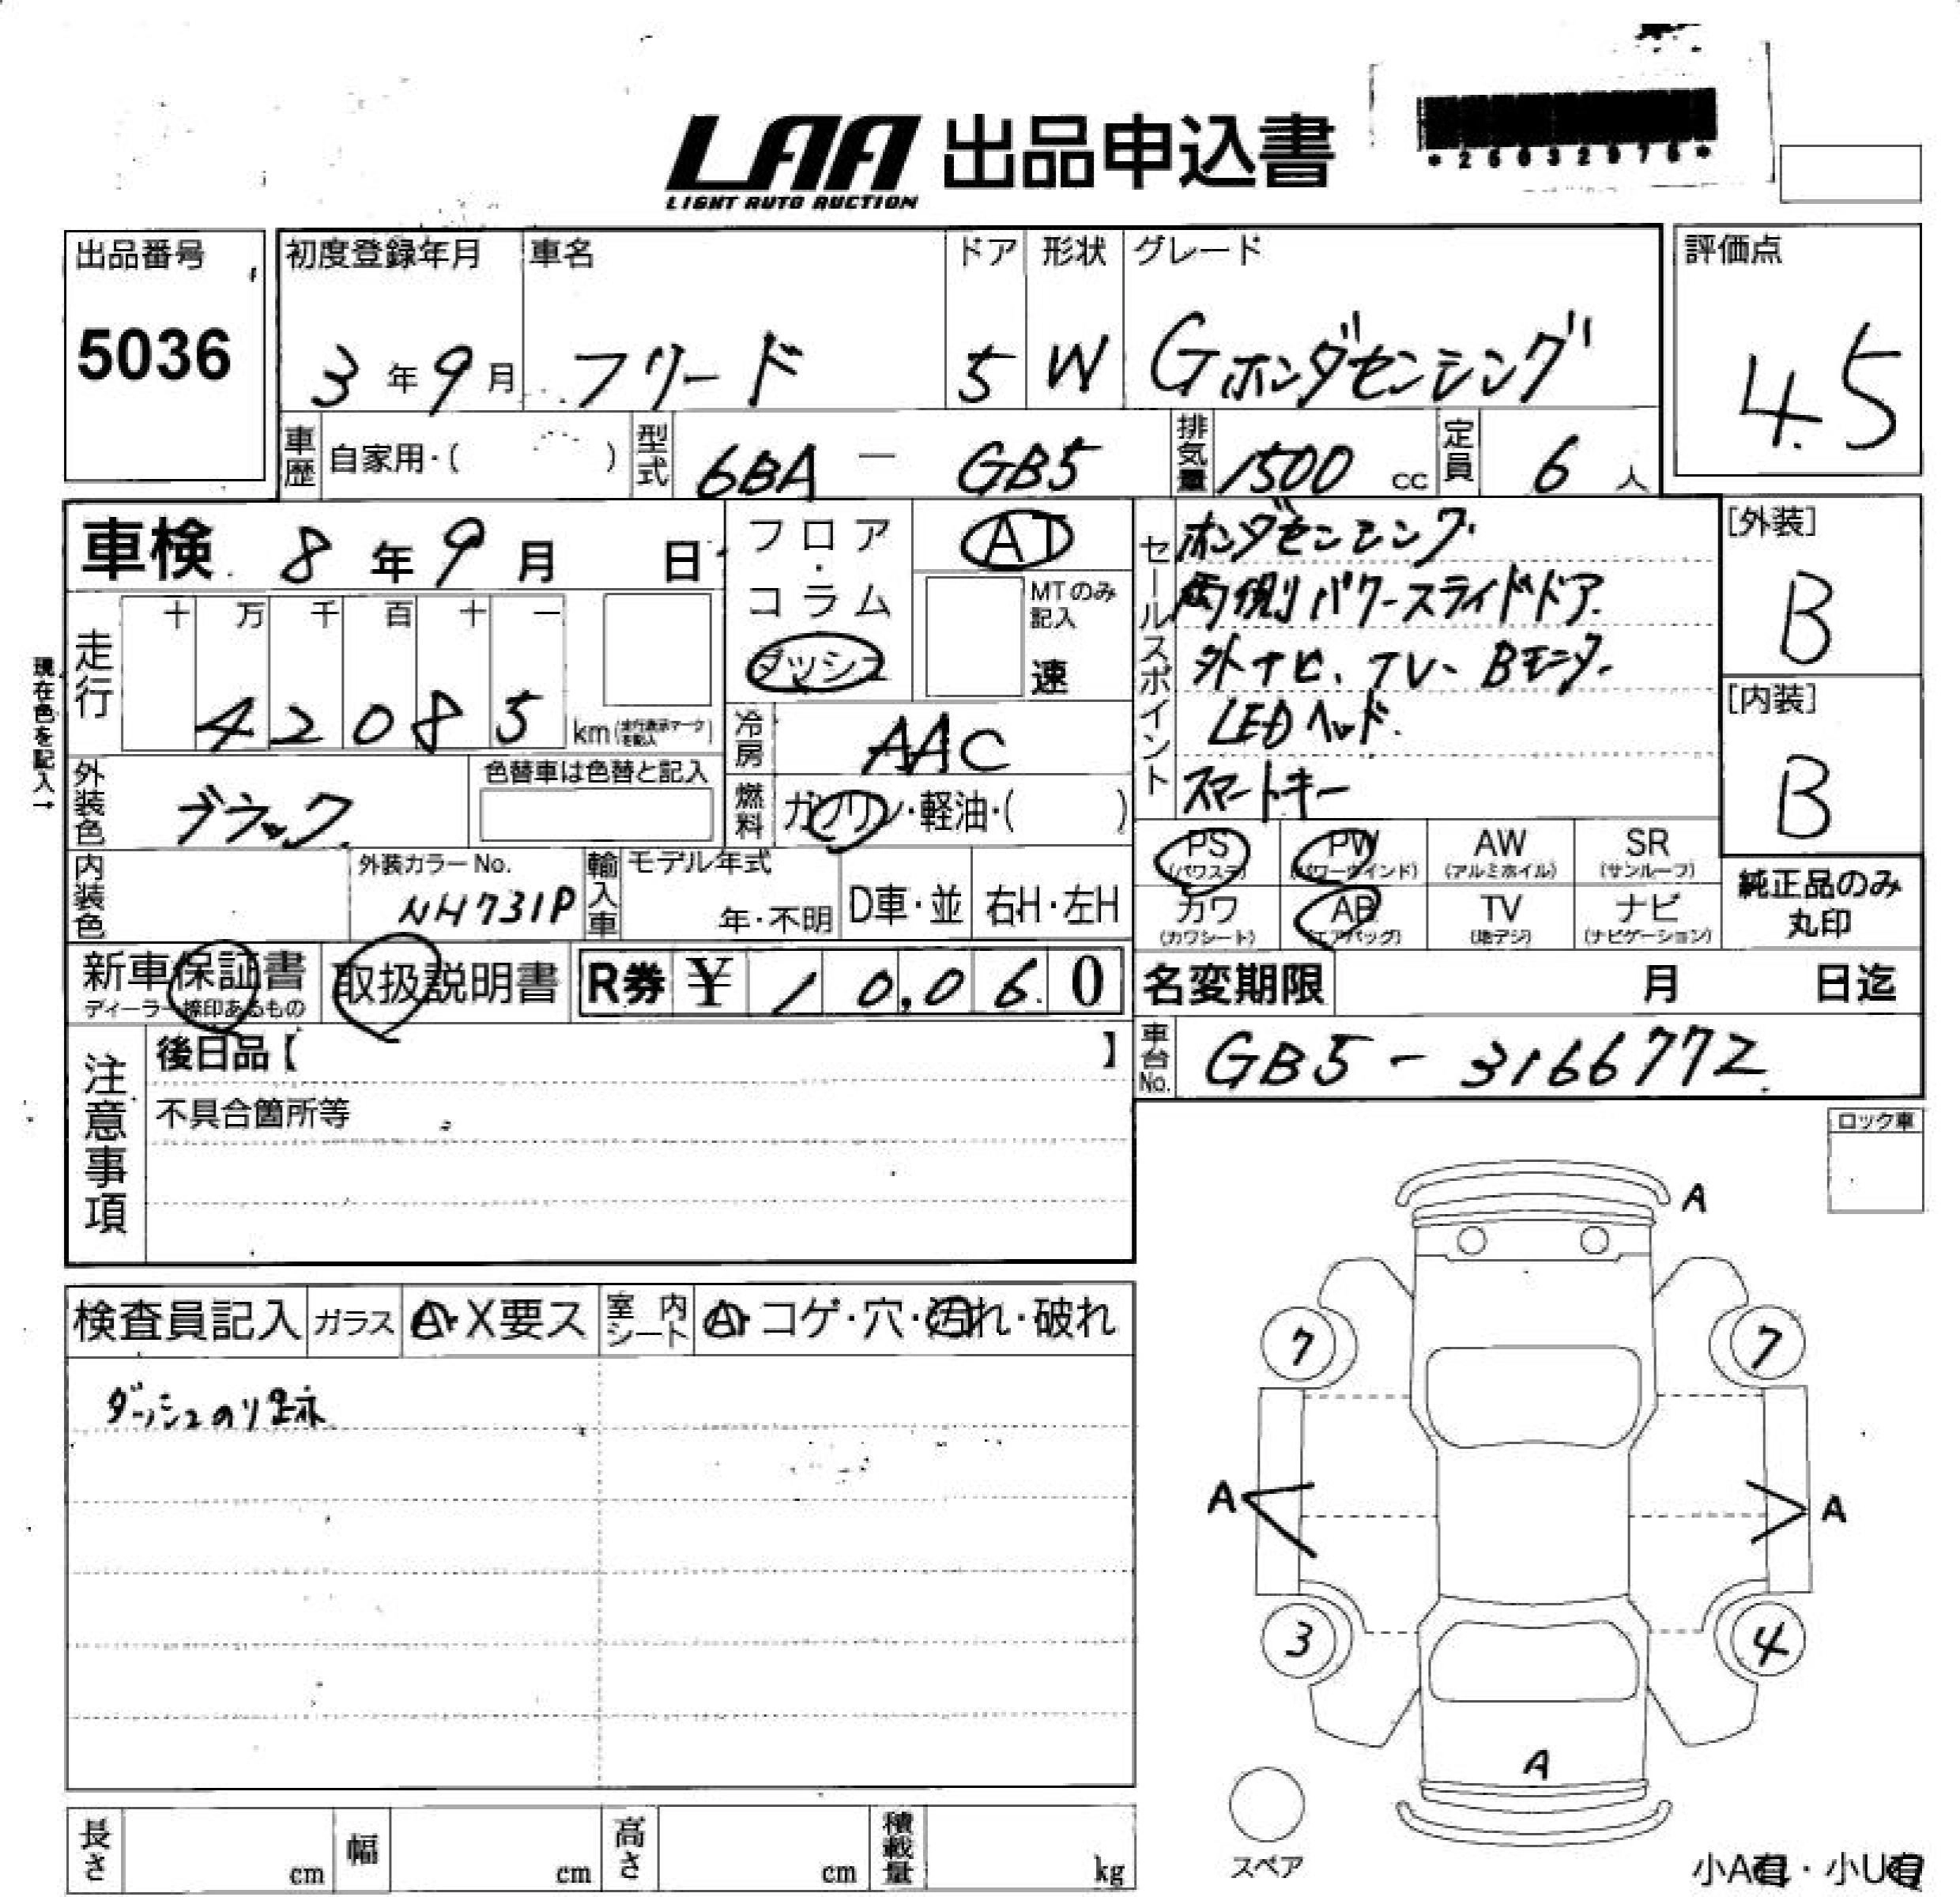 LAA 出品申込書
LIGHT AUTO AUCTION
*25032976*
出品番号
5036
初度登録年月
3年9月
車名
フリード
ドア
5
形状
W
グレード
Gホンダセンシング
評価点
4.5
車歴 自家用・( )
型式 6BA - GB5
排気量 1500 cc
定員 6 人
車検 8年9月 日
フロア・コラム
ダッシュ
AT
MTのみ記入
速
セールスポイント
ホンダセンシング
両側パワースライドドア
外ナビ、TV、Bモニター
LEDヘッド
スマートキー
[外装]
B
[内装]
B
現在色を記入→
走行
十 万 千 百 十 一
42085 km (走行表示マークを記入)
冷房 AAC
外装色 ブラック
色替車は色替と記入
燃料 ガソリン・軽油・( )
内装色
外装カラーNo.
NH731P
輸入車
モデル年式
年・不明
D車・並
右H・左H
PS (パワステ)
PW (パワーウインド)
AW (アルミホイル)
SR (サンルーフ)
カワ (カワシート)
AB (エアバッグ)
TV (地デジ)
ナビ (ナビゲーション)
純正品のみ
丸印
新車保証書
ディーラー捺印あるもの
取扱説明書
R券 ¥ 10,060
名変期限 月 日迄
注意事項
後日品【 】
不具合箇所等
車台No. GB5-3166772
ロック車
検査員記入
ガラス A・X要ス
室内シート A・コゲ・穴・汚れ・破れ
ダッシュのり跡
A
7 7
A A
3 4
A
スペア
長さ cm
幅 cm
高さ cm
積載量 kg
小A有・小U有